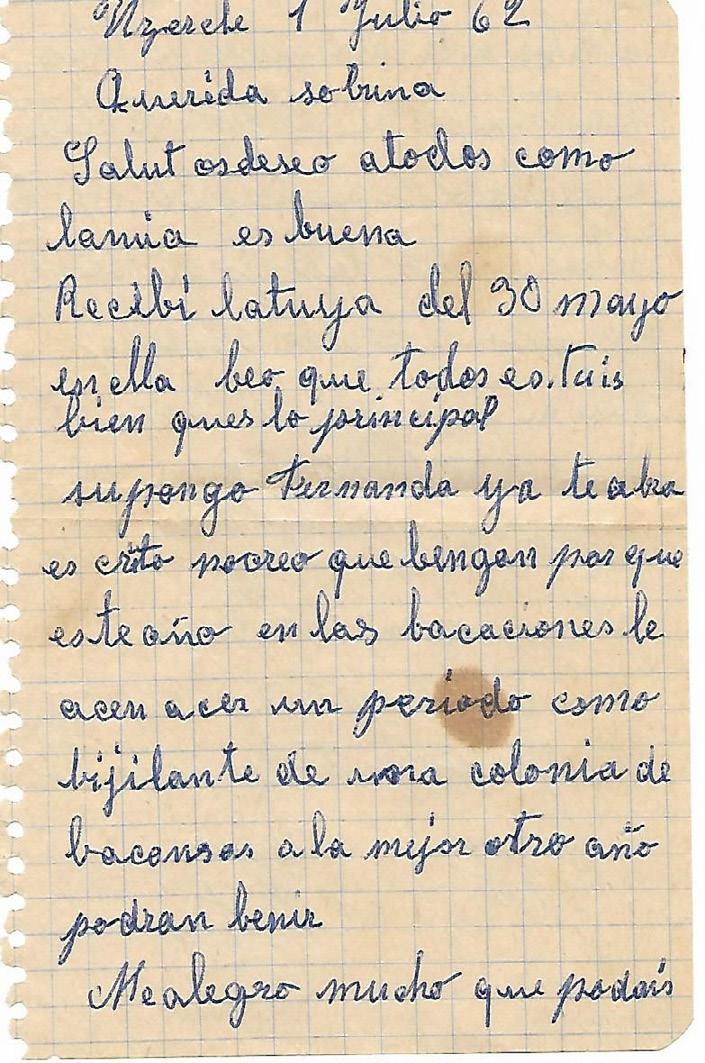 Uzerche 1 Julio 62
Querida sobrina
Salut osdeseo atodos como
lamia es buena
Recibí latuya del 30 mayo
en ella beo que todos estais
bien ques lo principal
supongo Fernanda ya te abra
es crito nocreo que bengan por que
este año en las bacaciones le
acen acer un periodo como
bijilante de una colonia de
bacansas a la mejor otro año
podran benir
Mealegro mucho que podais